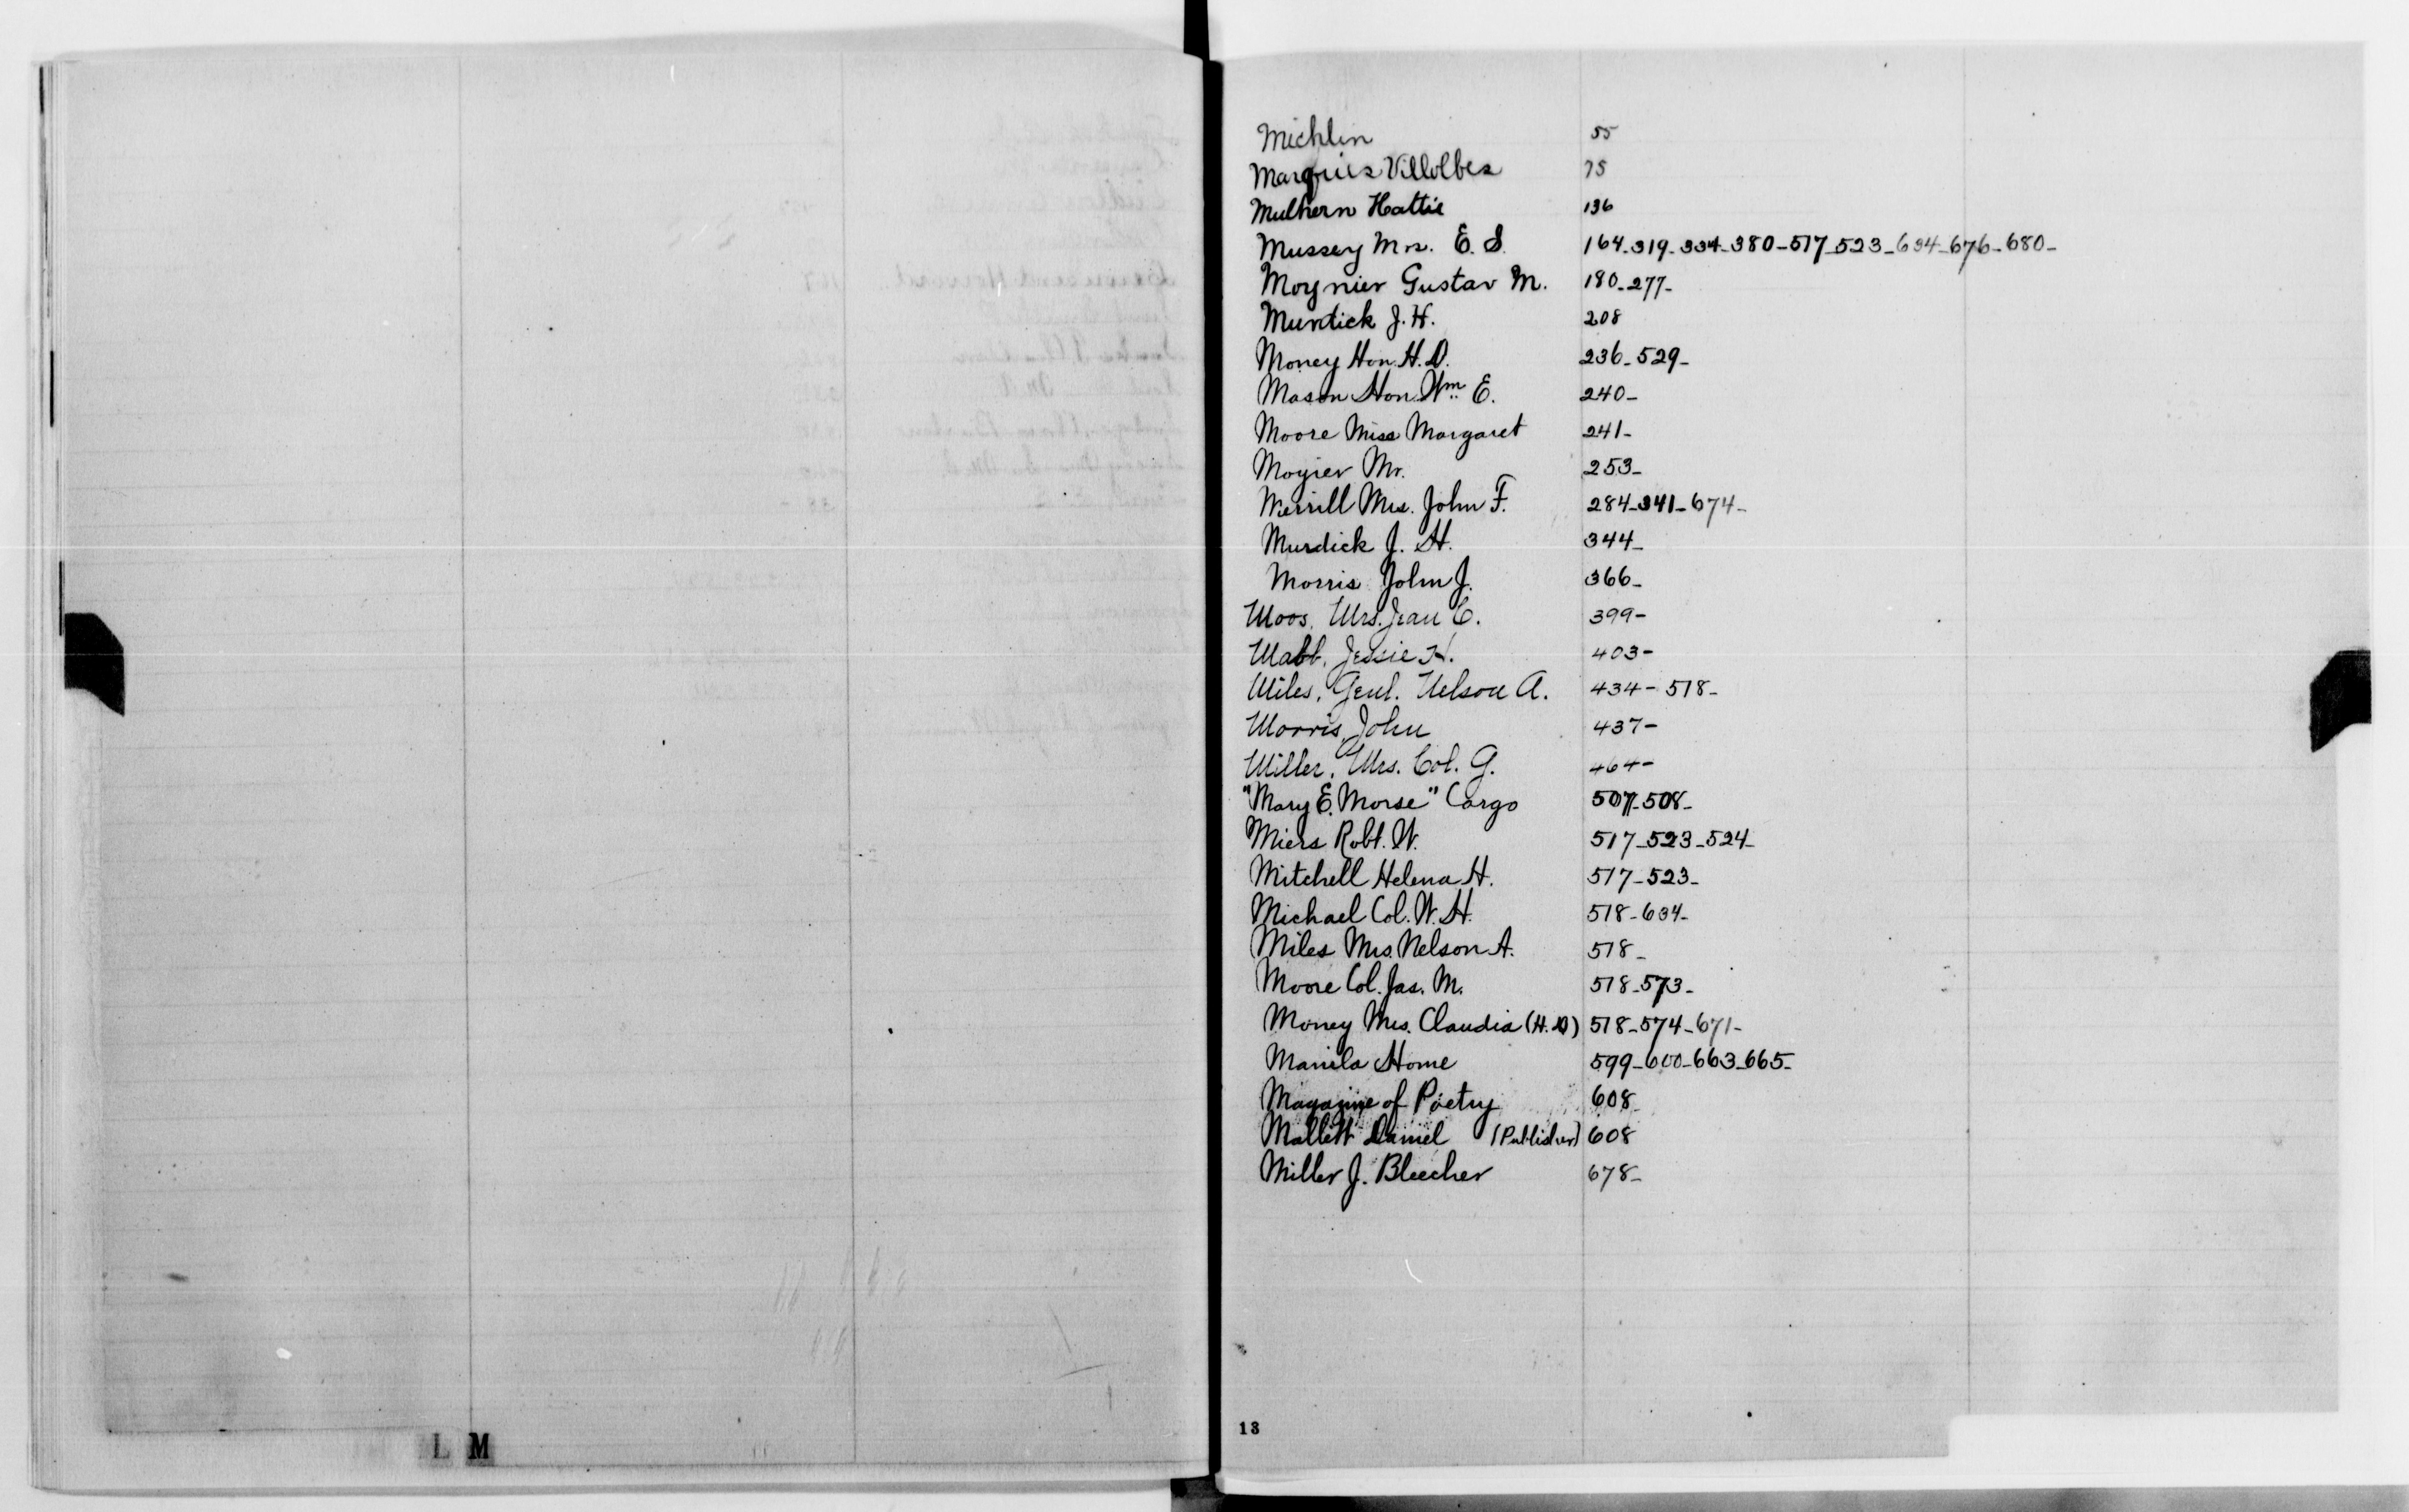 Michlin 55
Marquis Villolbes 75
Mulhern Hattie 136
Mussey Mrs. E. S. 164-319-334-380-517-523-634-676-680-
Moynier Gustav M. 180-277-
Murdick J. H. 208
Money Hon. H. D. 236-529-
Mason Hon. Wm. E. 240-
Moore Miss Margaret 241-
Moyier Mr. 253-
Merrill Mrs. John F. 284-341-674-
Murdick J. H. 344-
Morris John J. 366-
Moos, Mrs. Jean C. 399-
Mabb, Jessie H. 403-
Miles, Genl. Nelson A. 434-518-
Morris, John 437-
Miller, Mrs. Col. G. 464-
"Mary E. Morse" Cargo 507-508-
Miers Robt. W. 517-523-524-
Mitchell Helena H. 517-523-
Michael Col. W. H. 518-634-
Miles Mrs. Nelson A. 518-
Moore Col. Jas. M. 518-573-
Money Mrs. Claudia (H. D) 518-574-671-
Manila Home 599-600-663-665-
Magazine of Poetry 608
Mallett Daniel (Publisher) 608
Miller J. Bleecher 678-
13
L M